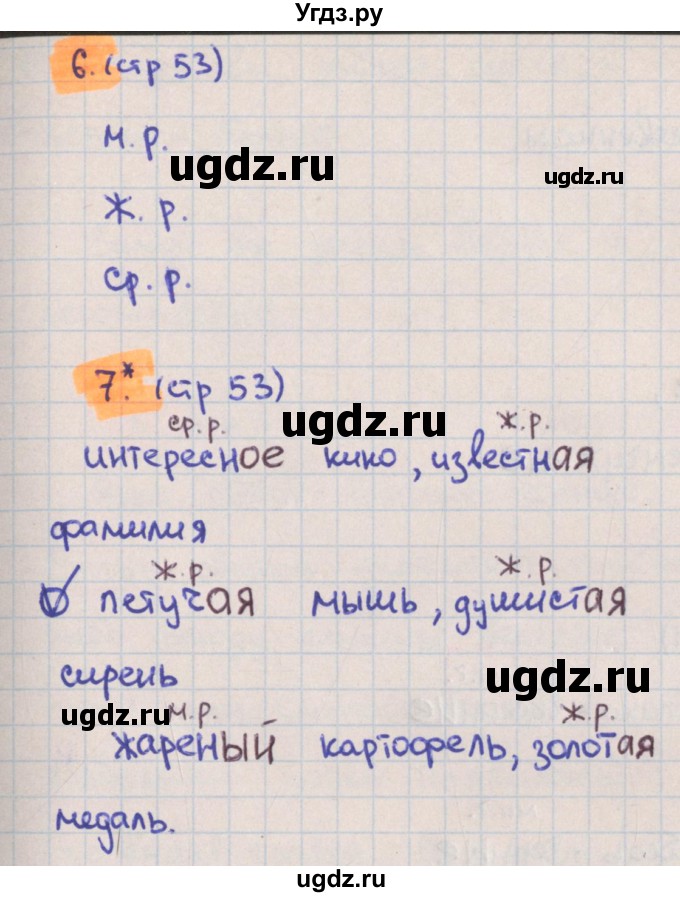 Угдз.ру
6. (стр 53)
м.р.
ugdz.ru
ugdz.ru
ж.р.
ср.р.
7.* (стр 53)
ugdz.ru
ср.р. ж.р.
интересное кино, известная
фамилия
ж.р. ж.р.
летучая мышь, душистая
сирень
ugdz.ru
ugdz.ru
м.р. ж.р.
жареный картофель, золотая
медаль.
ugdz.ru